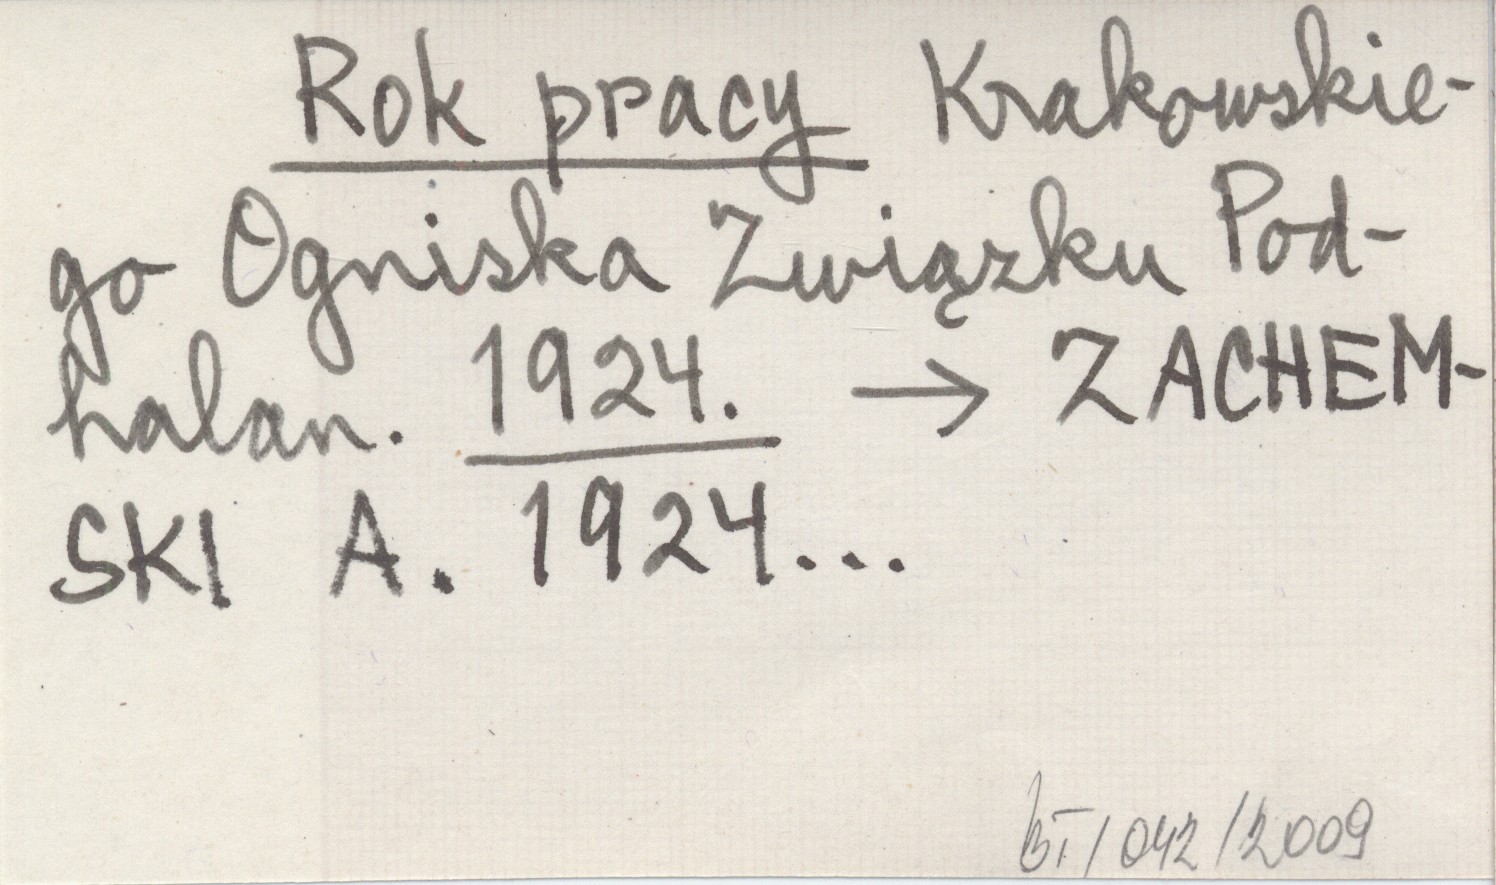 Rok pracy Krakowskie-
go Ogniska Związku Pod-
halan. 1924. → ZACHEM-
SKI A. 1924...
BT/042/2009